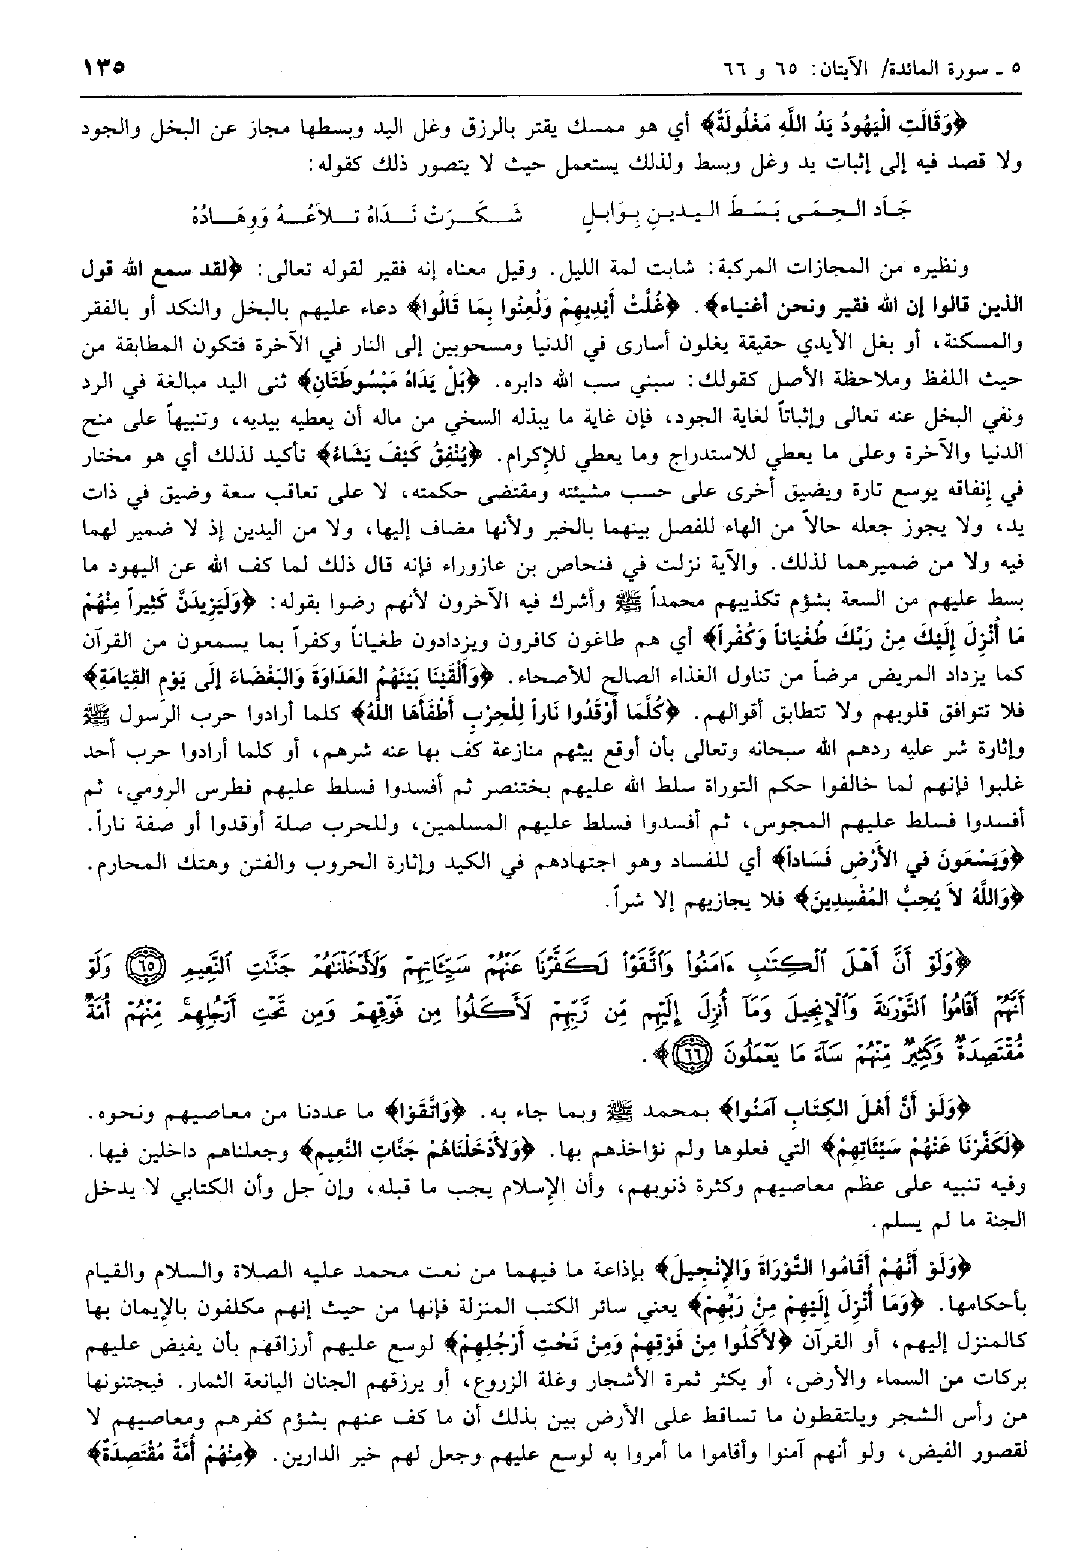 ٥ ـ سورة المائدة/ الآيتان: ٦٥ و ٦٦
١٣٥
﴿وَقَالَتِ الْيَهُودُ يَدُ اللَّهِ مَغْلُولَةٌ﴾ أي هو ممسك يقتر بالرزق وغل اليد وبسطها مجاز عن البخل والجود
ولا قصد فيه إلى إثبات يد وغل وبسط ولذلك يستعمل حيث لا يتصور ذلك كقوله:
جَادَ الحِمَى بَسَطَ اليدينِ بِوَابلٍ شَكَرَتْ نَدَاهُ تلاَعُهُ وَوِهَادُهُ
ونظيره من المجازات المركبة: شابت لمة الليل. وقيل معناه إنه فقير لقوله تعالى: ﴿لقد سمع الله قول
الذين قالوا إن الله فقير ونحن أغنياء﴾. ﴿غُلَّتْ أَيْدِيهِمْ وَلُعِنُوا بِمَا قَالُوا﴾ دعاء عليهم بالبخل والنكد أو بالفقر
والمسكنة، أو بغل الأيدي حقيقة يغلون أسارى في الدنيا ومسحوبين إلى النار في الآخرة فتكون المطابقة من
حيث اللفظ وملاحظة الأصل كقولك: سبني سب الله دابره. ﴿بَلْ يَدَاهُ مَبْسُوطَتَانِ﴾ ثنى اليد مبالغة في الرد
ونفي البخل عنه تعالى وإثباتاً لغاية الجود، فإن غاية ما يبذله السخي من ماله أن يعطيه بيديه، وتنبيهاً على منح
الدنيا والآخرة وعلى ما يعطي للاستدراج وما يعطي للإكرام. ﴿يُنْفِقُ كَيْفَ يَشَاءُ﴾ تأكيد لذلك أي هو مختار
في إنفاقه يوسع تارة ويضيق أخرى على حسب مشيئته ومقتضى حكمته، لا على تعاقب سعة وضيق في ذات
يد، ولا يجوز جعله حالاً من الهاء للفصل بينهما بالخبر ولأنها مضاف إليها، ولا من اليدين إذ لا ضمير لهما
فيه ولا من ضميرهما لذلك. والآية نزلت في فنحاص بن عازوراء فإنه قال ذلك لما كف الله عن اليهود ما
بسط عليهم من السعة بشؤم تكذيبهم محمداً ﷺ وأشرك فيه الآخرون لأنهم رضوا بقوله: ﴿وَلَيَزِيدَنَّ كَثِيراً مِنْهُمْ
مَا أُنْزِلَ إِلَيْكَ مِنْ رَبِّكَ طُغْيَاناً وَكُفْراً﴾ أي هم طاغون كافرون ويزدادون طغياناً وكفراً بما يسمعون من القرآن
كما يزداد المريض مرضاً من تناول الغذاء الصالح للأصحاء. ﴿وَأَلْقَيْنَا بَيْنَهُمُ العَدَاوَةَ وَالبَغْضَاءَ إلَى يَوْمِ القِيَامَةِ﴾
فلا تتوافق قلوبهم ولا تتطابق أقوالهم. ﴿كُلَّمَا أَوْقَدُوا نَاراً لِلْحَرْبِ أَطْفَأَهَا اللَّهُ﴾ كلما أرادوا حرب الرّسول ﷺ
وإثارة شر عليه ردهم الله سبحانه وتعالى بأن أوقع بينهم منازعة كف بها عنه شرهم، أو كلما أرادوا حرب أحد
غلبوا فإنهم لما خالفوا حكم التوراة سلط الله عليهم بختنصر ثم أفسدوا فسلط عليهم فطرس الرومي، ثم
أفسدوا فسلط عليهم المجوس، ثم أفسدوا فسلط عليهم المسلمين، وللحرب صلة أوقدوا أو صفة ناراً.
﴿وَيَسْعَونَ في الأَرْضِ فَسَاداً﴾ أي للفساد وهو اجتهادهم في الكيد وإثارة الحروب والفتن وهتك المحارم.
﴿وَاللَّهُ لاَ يُحِبُّ المُفْسِدِينَ﴾ فلا يجازيهم إلا شراً.
﴿وَلَوْ أَنَّ أَهْلَ ٱلْكِتَٰبِ ءَامَنُوا۟ وَٱتَّقَوْا۟ لَكَفَّرْنَا عَنْهُمْ سَيِّـَٔاتِهِمْ وَلَأَدْخَلْنَٰهُمْ جَنَّٰتِ ٱلنَّعِيمِ ﴿٦٥﴾ وَلَوْ
أَنَّهُمْ أَقَامُوا۟ ٱلتَّوْرَىٰةَ وَٱلْإِنجِيلَ وَمَآ أُنزِلَ إِلَيْهِم مِّن رَّبِّهِمْ لَأَكَلُوا۟ مِن فَوْقِهِمْ وَمِن تَحْتِ أَرْجُلِهِم مِّنْهُمْ أُمَّةٌ
مُّقْتَصِدَةٌ وَكَثِيرٌ مِّنْهُمْ سَآءَ مَا يَعْمَلُونَ ﴿٦٦﴾﴾.
﴿وَلَوْ أَنَّ أَهْلَ الكِتَابِ آمَنُوا﴾ بمحمد ﷺ وبما جاء به. ﴿وَاتَّقَوْا﴾ ما عددنا من معاصيهم ونحوه.
﴿لَكَفَّرْنَا عَنْهُمْ سَيِّئَاتِهِمْ﴾ التي فعلوها ولم نؤاخذهم بها. ﴿وَلأَدْخَلْنَاهُمْ جَنَّاتِ النَّعِيمِ﴾ وجعلناهم داخلين فيها.
وفيه تنبيه على عظم معاصيهم وكثرة ذنوبهم، وأن الإِسلام يجب ما قبله، وإن جل وأن الكتابي لا يدخل
الجنة ما لم يسلم.
﴿وَلَوْ أَنَّهُمْ أَقَامُوا التَّوْرَاةَ وَالإِنْجِيلَ﴾ بإذاعة ما فيهما من نعت محمد عليه الصلاة والسلام والقيام
بأحكامها. ﴿وَمَا أُنْزِلَ إِلَيْهِمْ مِنْ رَبِّهِمْ﴾ يعني سائر الكتب المنزلة فإنها من حيث إنهم مكلفون بالإيمان بها
كالمنزل إليهم، أو القرآن ﴿لأَكَلُوا مِنْ فَوْقِهِمْ وَمِنْ تَحْتِ أَرْجُلِهِمْ﴾ لوسع عليهم أرزاقهم بأن يفيض عليهم
بركات من السماء والأرض، أو يكثر ثمرة الأشجار وغلة الزروع، أو يرزقهم الجنان اليانعة الثمار. فيجتنونها
من رأس الشجر ويلتقطون ما تساقط على الأرض بين بذلك أن ما كف عنهم بشؤم كفرهم ومعاصيهم لا
لقصور الفيض، ولو أنهم آمنوا وأقاموا ما أمروا به لوسع عليهم وجعل لهم خير الدارين. ﴿مِنْهُمْ أُمَّةٌ مُقْتَصِدَةٌ﴾